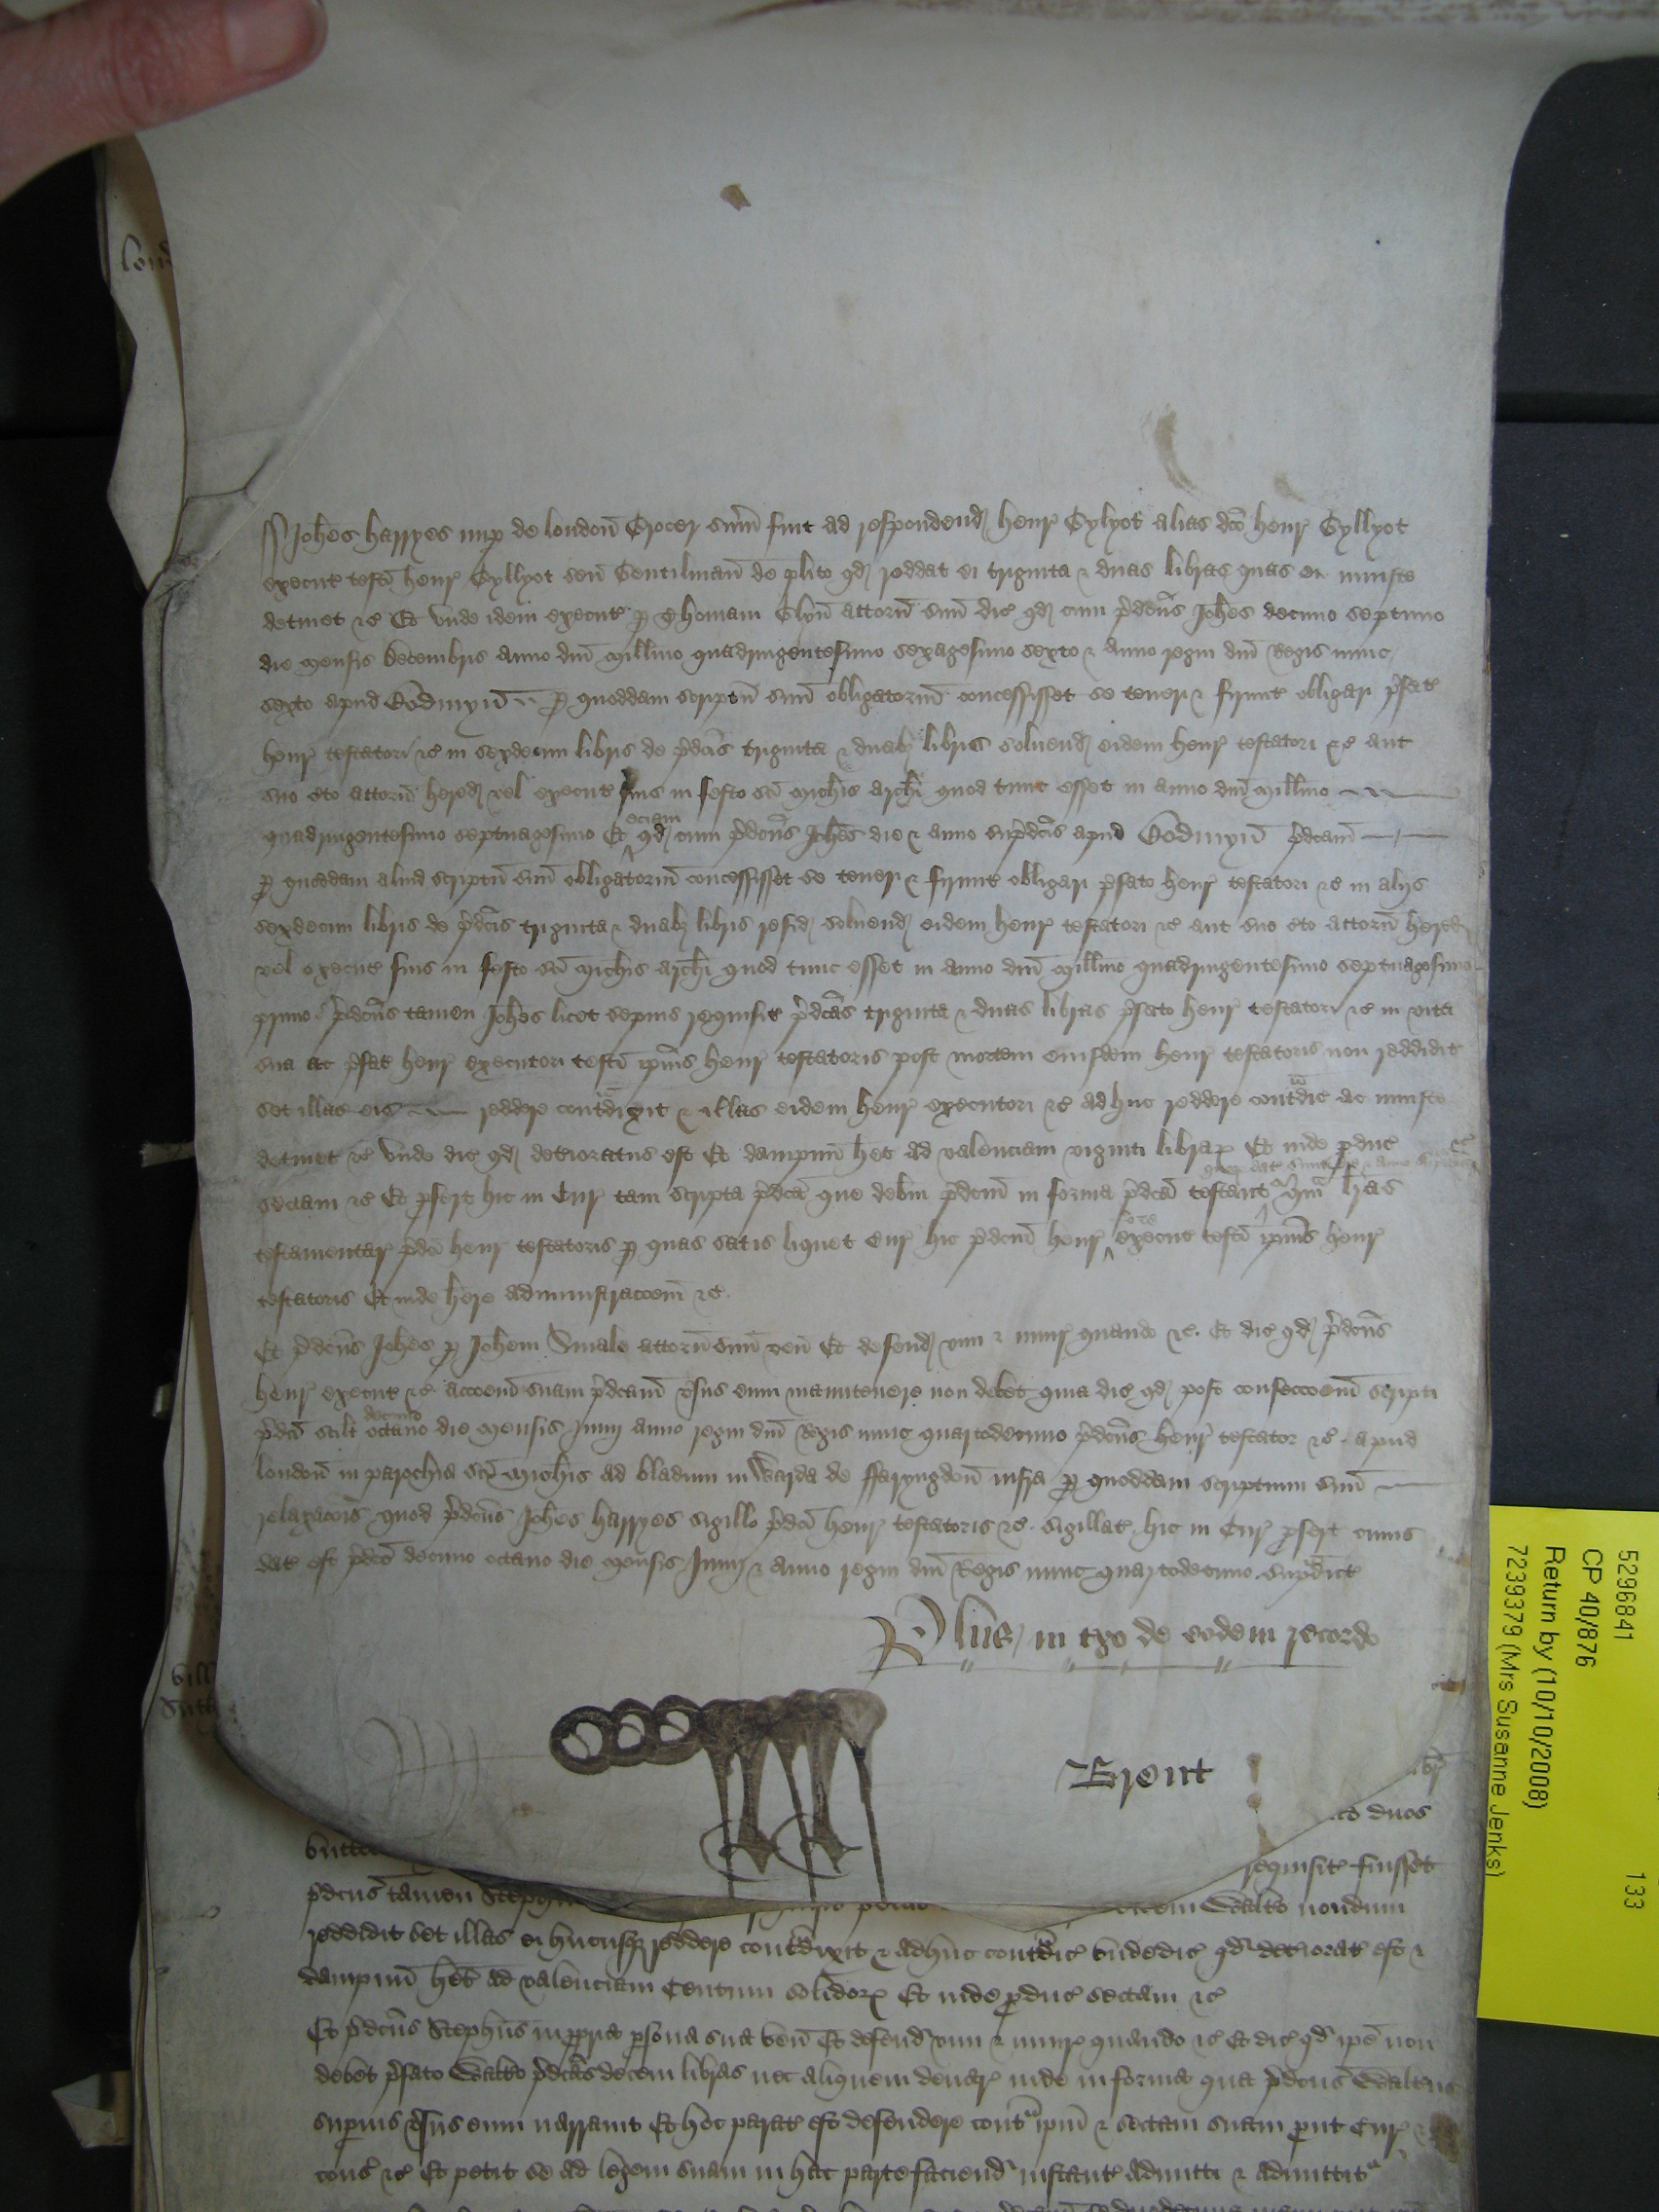 Lond
Johes Harryes nup de London Grocer sum fuit ad respondend Henr Gylyot alias dco Henr Gyllyot
execut testi Henr Gyllyot sen Gentilman de plito qd reddat ei triginta & duas libras quas ei iniuste
detinet &c Et unde idem execut p Thomam Glyn attorn suu dic qd cum pdcus Johes decimo septimo
die mensis Decembris anno dni millimo quadringentesimo sexagesimo sexto & anno regni dni Regis nunc
sexto apud Bodmyn p quoddam scriptu suu obligatoriu concessisset se teneri & firmit obligari pfat
Henr testatori &c in sexdecim libris de pdcis triginta & duab libris solvend eidem Henr testatori &c aut
suo cto attorn hered vel execut suis in festo sci Michis archi quod tunc esset in anno dni millimo
quadringentesimo septuagesimo Et eciam qd cum pdcus Johes die & anno supdcis apud Bodmyn pdcam
p quoddam aliud scriptu suu obligatoriu concessisset se teneri & firmit obligari pfato Henr testatori &c in alijs
sexdecim libris de pdcis triginta & duab libris resid solvend eidem Henr testatori &c aut suo cto attorn hered
vel execut suis in festo sci Michis archi quod tunc esset in anno dni millimo quadringentesimo septuagesimo
primo pdcus tamen Johes licet sepius requisit pdcas triginta & duas libras pfato Henr testatori &c in vita
sua ac pfat Henr executori testi ipius Henr testatoris post mortem eiusdem Henr testatoris non reddidit
set illas eis reddere contradixit & illas eidem Henr executori &c adhuc reddere contradic ac iniuste
detinet &c Unde dic qd deterioratus est Et dampnu het ad valenciam viginti librar Et inde pduc
sectam &c Et pfert hic in Cur tam scripta pdca que debm pdcm in forma pdca testant quor dat sunt die & anno supdcis &c qm lras
testamentar pdci Henr testatoris p quas satis liquet Cur hic pdcm Henr fore execut testi ipius Henr
testatoris Et inde here administracoem &c
Et pdcus Johes p Johem Smale attorn suu ven Et defend vim & iniur quando &c Et dic qd pdcus
Henr execut &c accoem suam pdcam vsus eum manutenere non debet quia dic qd post confeccoem scripti
pdci scilt decimo octavo die mensis Junij anno regni dni Regis nunc quartodecimo pdcus Henr testator &c apud
London in parochia sci Michis ad bladum in Warda de ffaryngdon infra p quoddam scriptum suu
relaxacois quod pdcus Johes Harryes sigillo pdci Henr testatoris &c sigillat hic in Cur pfert cuius
dat est pdco decimo octavo die mensis Junij & anno regni dni Regis nunc quartodecimo supdict
Plus in txo de eodem recordo
Brent
duos
requisit fuisset
pdcus tamen Steph Walto nondum
reddidit set illas ei hucusq reddere contradixit & adhuc contradic unde dic qd deteriorat est &
dampnu het ad valenciam Centum solidor Et inde pduc sectam &c
Et pdcus Stephus in ppria psona sua ven Et defend vim & iniur quando &c Et dic qd ipe non
debet pfato Walto pdcas decem libras nec aliquem denar inde in forma qua pdcus Walterus
supius vsus eum narravit Et hoc parat est defendere contra ipm & sectam suam put Cur &
cons &c Et petit se ad legem suam in hac parte faciend instant admitti & admittit
5296841
133
CP 40/876
Return by (10/10/2008)
7239379 (Mrs Susanne Jenks)